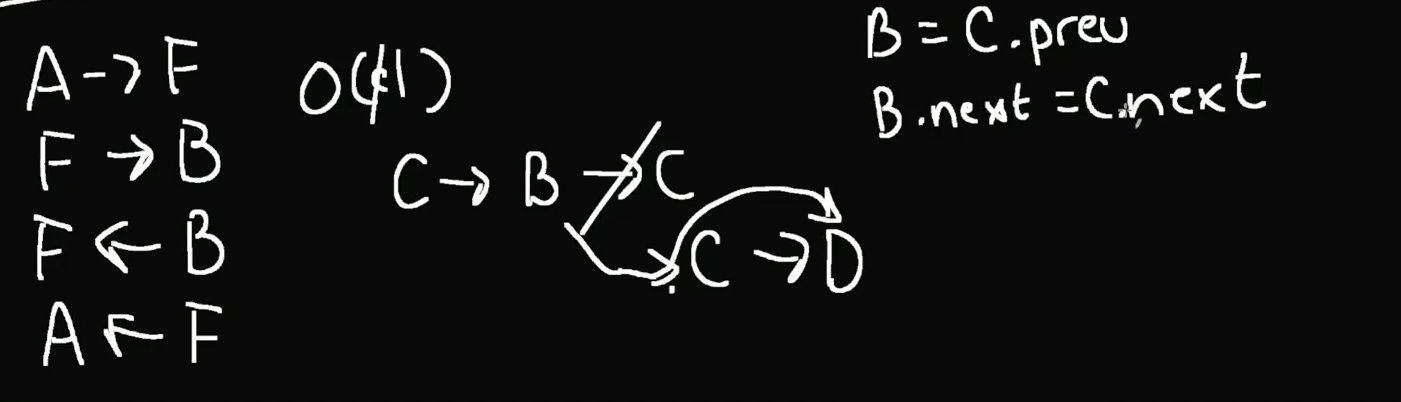 A → F
F → B
F ← B
A ← F
O(1)
C → B → C
C → D
B = C.prev
B.next = C.next